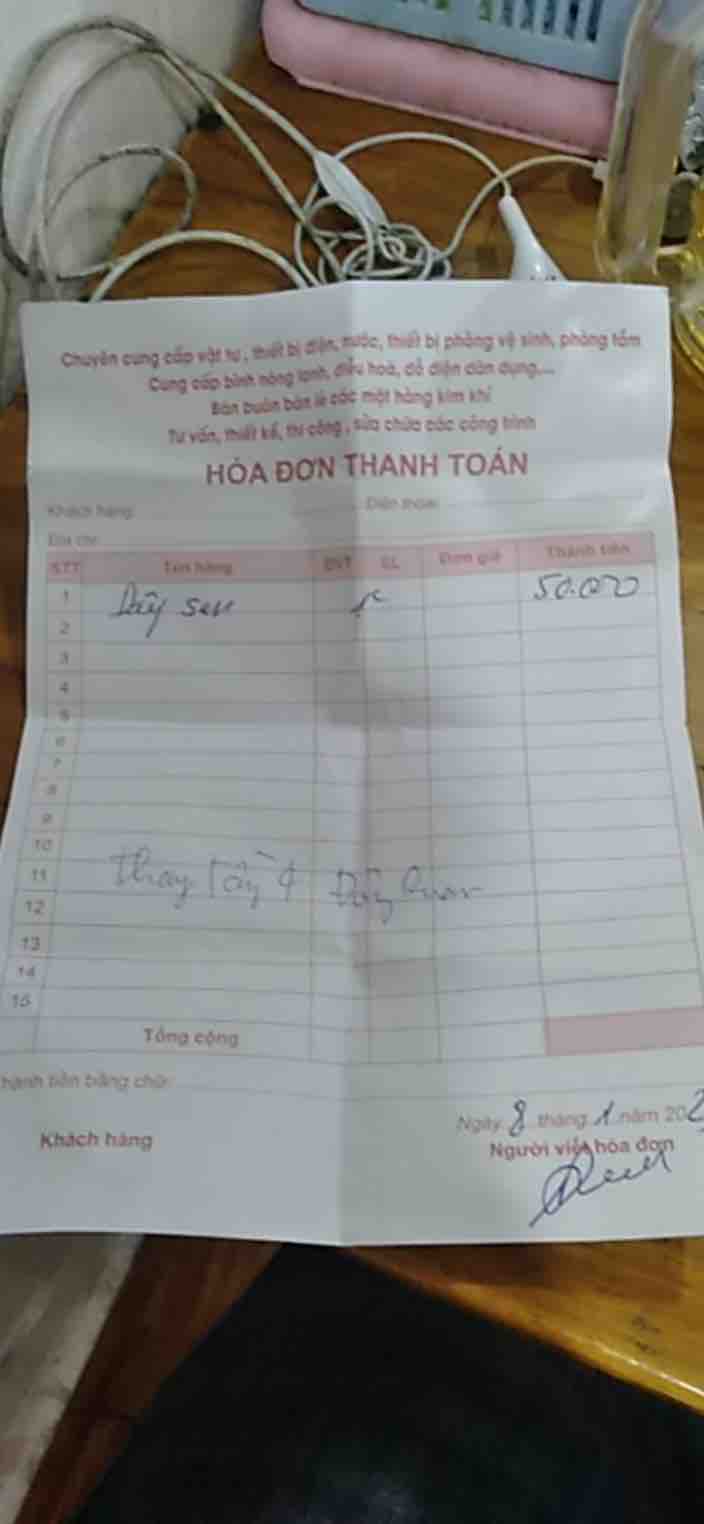 Chuyên cung cấp vật tư, thiết bị điện, nước, thiết bị phòng vệ sinh, phòng tắm
Cung cấp bình nóng lạnh, điều hoà, đồ điện dân dụng....
Bán buôn bán lẻ các mặt hàng kim khí
Tư vấn, thiết kế, thi công, sửa chữa các công trình
HÓA ĐƠN THANH TOÁN
Khách hàng: Điện thoại:
Địa chỉ:
STT Tên hàng ĐVT SL Đơn giá Thành tiền
1 Dây sen 1c 50.000
2
3
4
5
6
7
8
9
10
11 thay tầng 4
12
13
14
15
Tổng cộng
Thành tiền bằng chữ:
Ngày 8 tháng 1 năm 202
Khách hàng Người viết hóa đơn